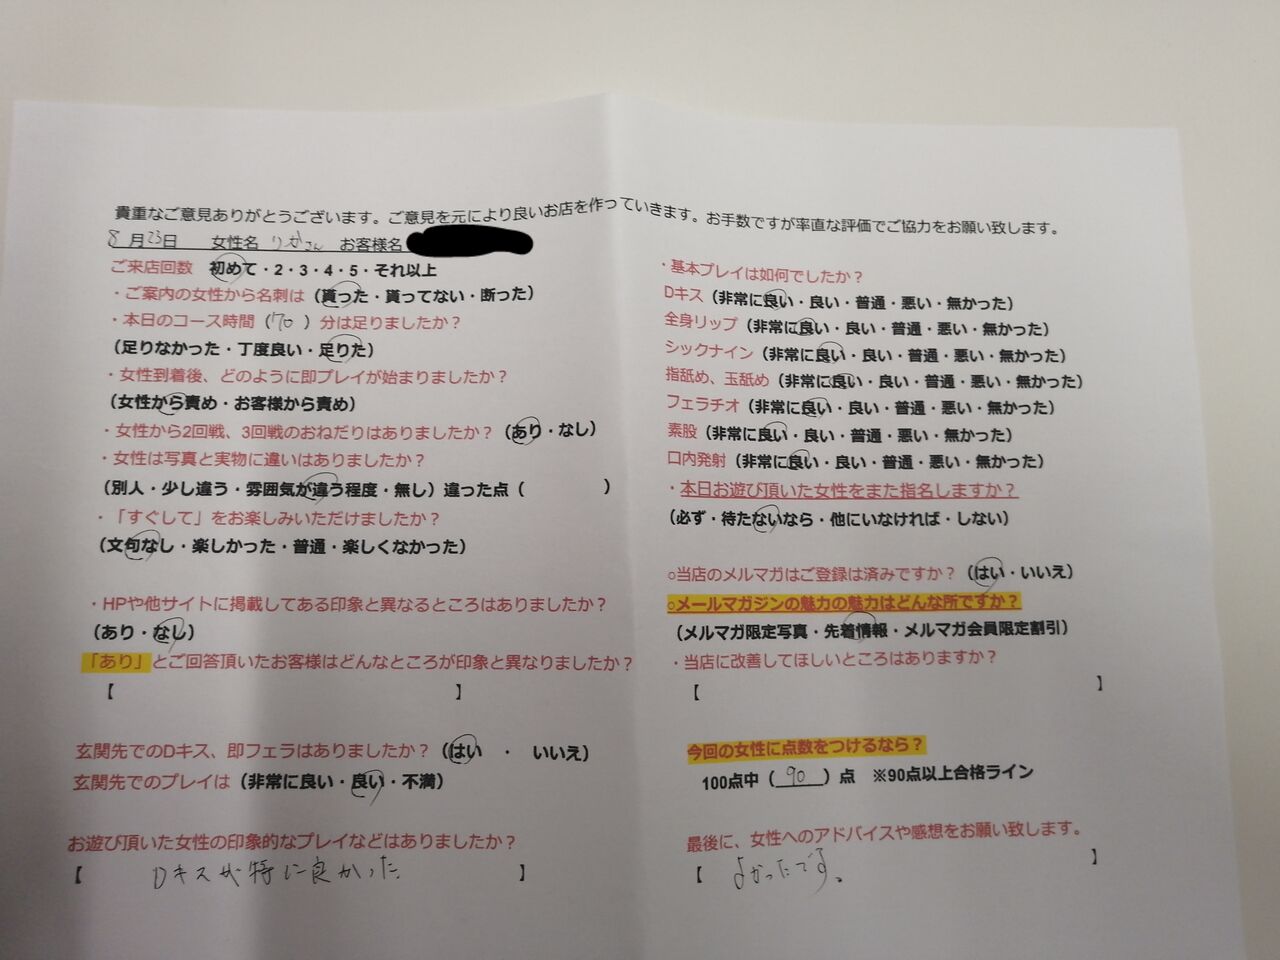 貴重なご意見ありがとうございます。ご意見を元により良いお店を作っていきます。お手数ですが率直な評価でご協力をお願い致します。
8月23日 女性名 りかさん お客様名
ご来店回数 初めて・2・3・4・5・それ以上
・ご案内の女性から名刺は（貰った・貰ってない・断った）
・本日のコース時間（70）分は足りましたか？
（足りなかった・丁度良い・足りた）
・女性到着後、どのように即プレイが始まりましたか？
（女性から責め・お客様から責め）
・女性から2回戦、3回戦のおねだりはありましたか？（あり・なし）
・女性は写真と実物に違いはありましたか？
（別人・少し違う・雰囲気が違う程度・無し）違った点（ ）
・「すぐして」をお楽しみいただけましたか？
（文句なし・楽しかった・普通・楽しくなかった）
・HPや他サイトに掲載してある印象と異なるところはありましたか？
（あり・なし）
「あり」とご回答頂いたお客様はどんなところが印象と異なりましたか？
【 】
玄関先でのDキス、即フェラはありましたか？（はい ・ いいえ）
玄関先でのプレイは（非常に良い・良い・不満）
お遊び頂いた女性の印象的なプレイなどはありましたか？
【 Dキスが特に良かった 】
・基本プレイは如何でしたか？
Dキス（非常に良い・良い・普通・悪い・無かった）
全身リップ（非常に良い・良い・普通・悪い・無かった）
シックナイン（非常に良い・良い・普通・悪い・無かった）
指舐め、玉舐め（非常に良い・良い・普通・悪い・無かった）
フェラチオ（非常に良い・良い・普通・悪い・無かった）
素股（非常に良い・良い・普通・悪い・無かった）
口内発射（非常に良い・良い・普通・悪い・無かった）
・本日お遊び頂いた女性をまた指名しますか？
（必ず・待たないなら・他にいなければ・しない）
○当店のメルマガはご登録は済みですか？（はい・いいえ）
○メールマガジンの魅力の魅力はどんな所ですか？
（メルマガ限定写真・先着情報・メルマガ会員限定割引）
・当店に改善してほしいところはありますか？
【 】
今回の女性に点数をつけるなら？
100点中（ 90 ）点 ※90点以上合格ライン
最後に、女性へのアドバイスや感想をお願い致します。
【 よかったです。 】